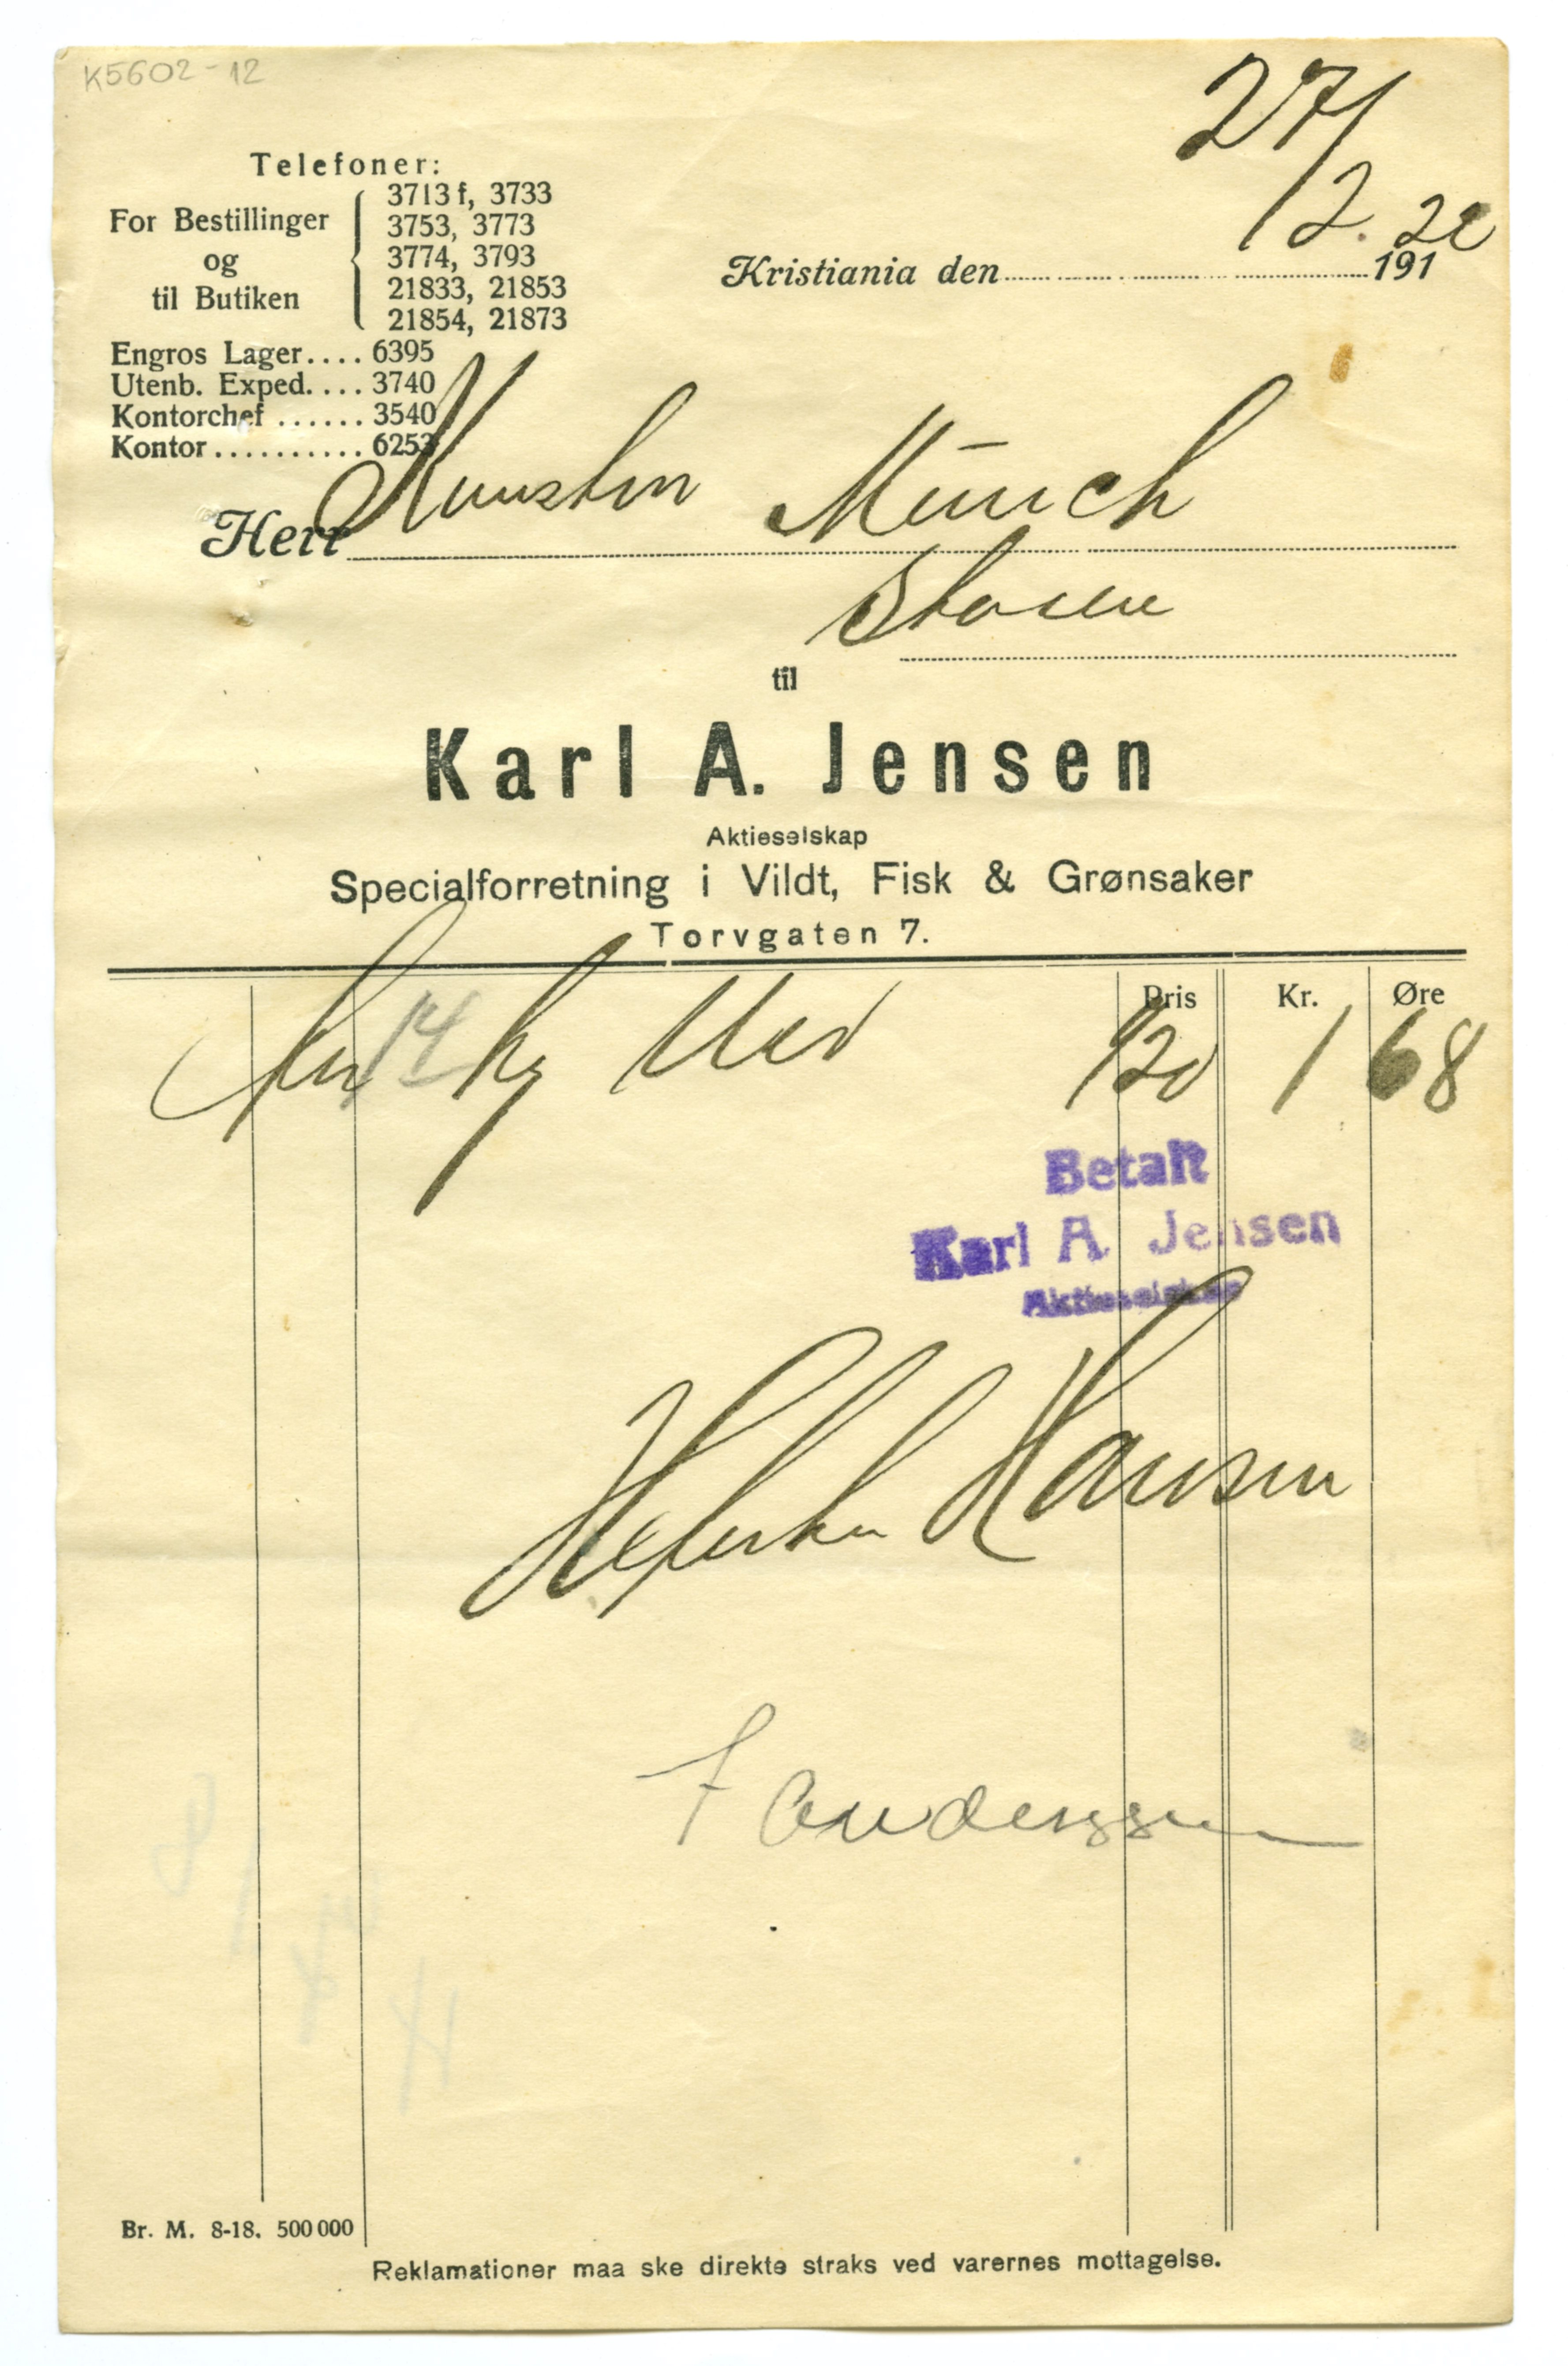 K5602-12
27/2. 20
Telefoner:
For Bestillinger og til Butiken
3713 f, 3733
3753, 3773
3774, 3793
21833, 21853
21854, 21873
Engros Lager.... 6395
Utenb. Exped.... 3740
Kontorchef ...... 3540
Kontor........... 6253
Kristiania den 191
Herr Kunstm Münch
Skøien
til
Karl A. Jensen
Aktieselskap
Specialforretning i Vildt, Fisk & Grønsaker
Torvgaten 7.
Pris Kr. Øre
14 kg 120 1 68
Betalt
Karl A. Jensen
Aktieselskap
Hansen
F Anderssen
Br. M. 8-18. 500 000
Reklamationer maa ske direkte straks ved varernes mottagelse.